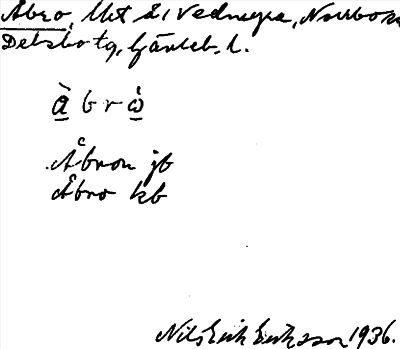 Åbro, Vid Vednegra, Norrbo sn
Delsbo tg, Gävleb. l.
å̀ b r ò
Åbron jb
Åbro kb
Nils Erik Eriksson 1936.